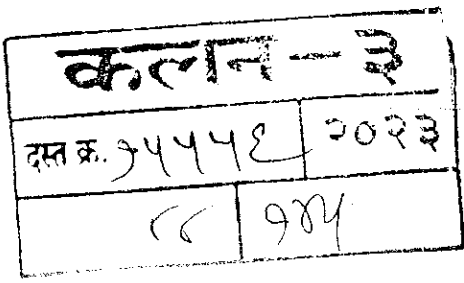 कलन - ३
दस्त क्र. १५५५६ २०२३
८८ १४५